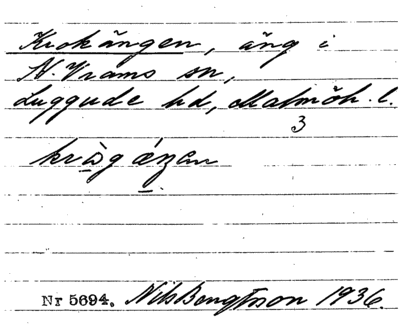 Krokängen, äng i
N. Vrams sn,
Luggude hd, Malmöh. l.
3
Nr 5694. Nils Bengtsson 1936.